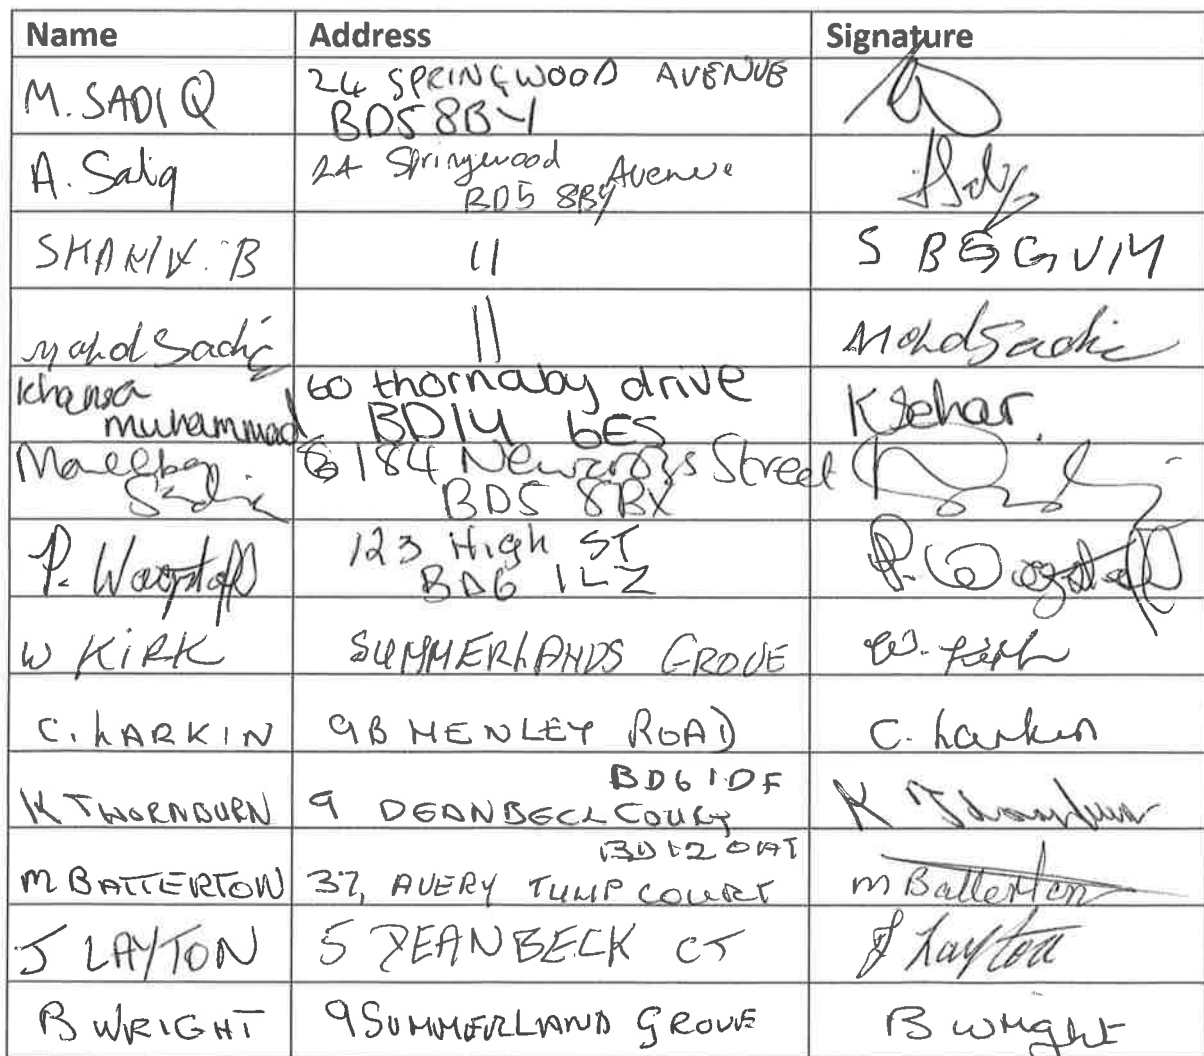 Name Address Signature
M. SADIQ 24 SPRINGWOOD AVENUE
BD5 8BY
A. Sadiq 24 Springwood Avenue
BD5 8BY
B " S BEGUM
Mohd Sadiq " Mohd Sadiq
Khansa 60 thornaby drive K Sehar
muhammad BD14 6ES
184 Newcross Street
BD5 8BX
P. Wagstaff 123 High ST P. Wagstaff
BD6 1LZ
W KIRK SUMMERLANDS GROVE W. Kirk
C. LARKIN 9B HENLEY ROAD C. Larkin
BD6 1DF
K THORNBURN 9 DEANBECK COURT K Thornburn
BD12 0AT
M BATTERTON 37, AVERY TULIP COURT M Batterton
J LAYTON 5 DEANBECK CT J Layton
B WRIGHT 9 SUMMERLAND GROVE B Wright